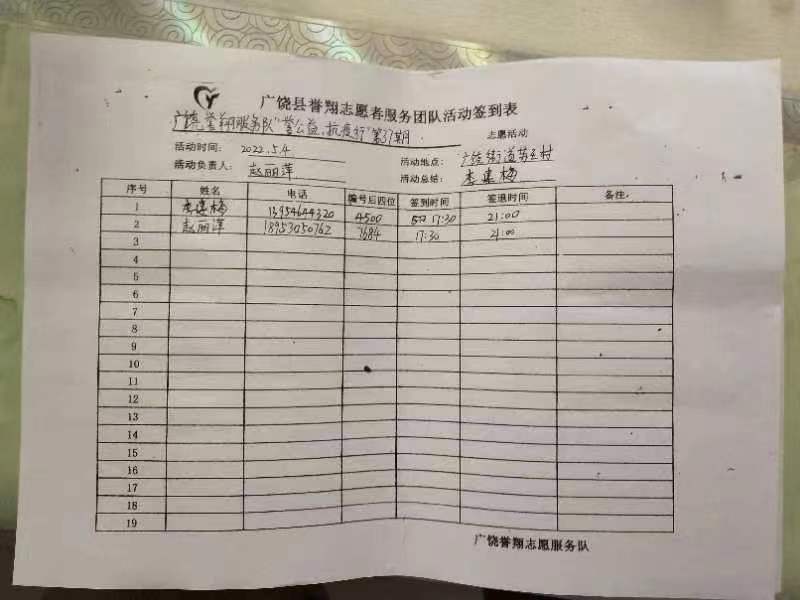 广饶县誉翔志愿者服务团队活动签到表
广饶誉翔服务队"誉公益,抗疫行"第37期 志愿活动
活动时间: 2022.5.4 活动地点: 广饶街道苏王村
活动负责人: 赵丽萍 活动总结: 李建梅
序号 姓名 电话 编号后四位 签到时间 签退时间 备注.
1 李建梅 13954644320 4500 17:30 21:00
2 赵丽萍 18953050762 7684 17:30 21:00
3
4
5
6
7
8
9
10
11
12
13
14
15
16
17
18
19
广饶誉翔志愿服务队